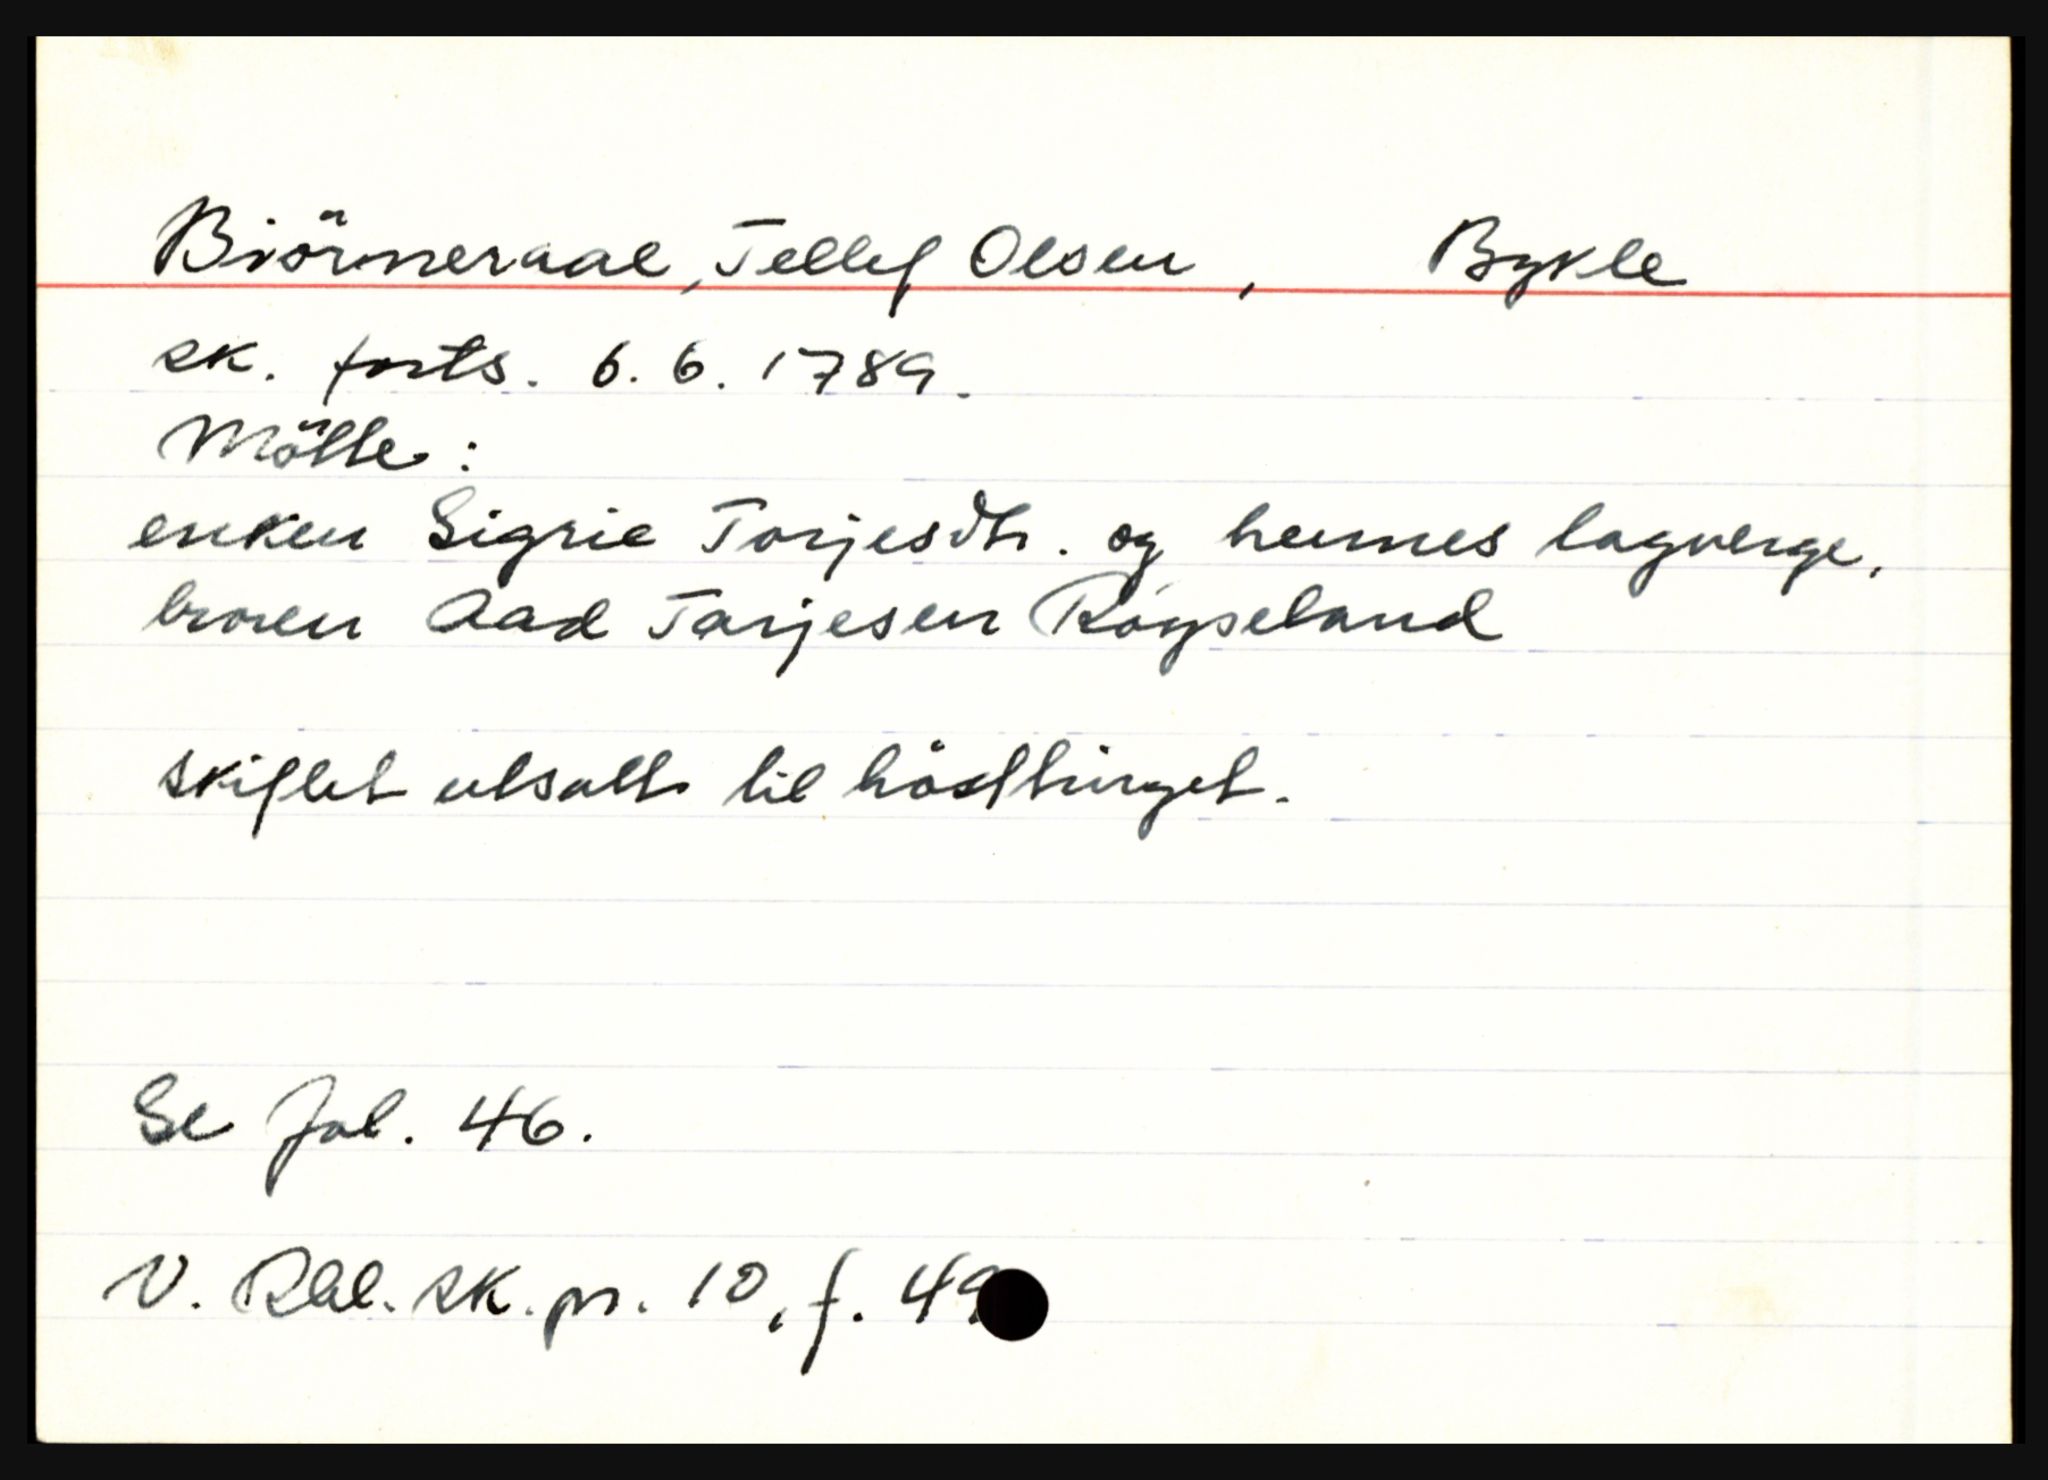 Biörneraae, Tellef Olsen, Bykle
sk. forts. 6.6.1789.
Mötte:
enken Sigrie Torjesdtr. og hennes lagverge,
broren Aad Tarjesen Røyseland
skiftet utsatt til hösttinget.
Se fol. 46.
V. Rbl. sk.pr. 10, f. 49